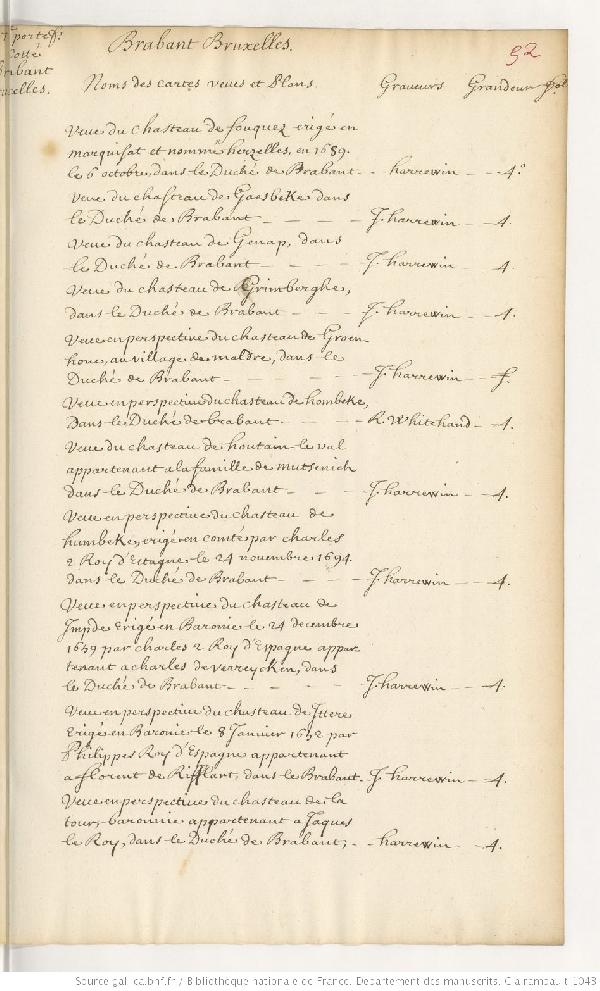 portef:
cotté
Brabant
Bruxelles.
Brabant Bruxelles.
92
Noms des cartes veues et Plans. Graveurs Grandeur fol
Veue du chasteau de fouquez erigé en
marquisat et nommé herzelles, en 1689.
le 6 octobre, dans le Duché de Brabant - - harrewin - - 4.º
Veue du chasteau de Gaesbeke dans
le Duché de Brabant - - - - J. harrewin - - 4.
Veue du chasteau de Genap, dans
le Duché de Brabant - - - - J. harrewin - - 4.
Veue du chasteau de Grimberghe,
dans le Duché de Brabant - - - J. harrewin - - 4.
Veue en perspective du chasteau de Groen
houe, au village de maldre, dans le
Duché de Brabant - - - - - J. harrewin - - f.
Veue en perspective du chasteau de hombeke,
Dans le Duché de brabant - - - R. Whitehand - 4.
Veue du chasteau de houtain le val
appartenant a la famille de mutsenich
dans le Duché de Brabant - - - J. harrewin - - 4.
Veue en perspective du chasteau de
humbeke, erigé en comté par charles
2 Roy d'Espagne, le 24 novembre 1694.
dans le Duché de Brabant - - - J. harrewin - - 4.
Veue en perspective du chasteau de
Impde Erigé en Baronie le 24 decembre
1659 par charles 2 Roy d'Espagne appar
tenant a charles de vereycken, dans
le Duché de Brabant - - - - J. harrewin - - 4.
Veue en perspective du chasteau de Ittere
Erigé en Baronie le 8 Janvier 1652 par
Philippes Roy d'Espagne appartenant
a florent de Rifflart, dans le Brabant. J. harrewin - - 4.
Veue en perspective du chasteau de la
tour, baronnie appartenant a Jaques
le Roy, dans le Duché de Brabant; - - harrewin - - 4.
Source gallica.bnf.fr / Bibliothèque nationale de France. Département des manuscrits. Clairambault 1048